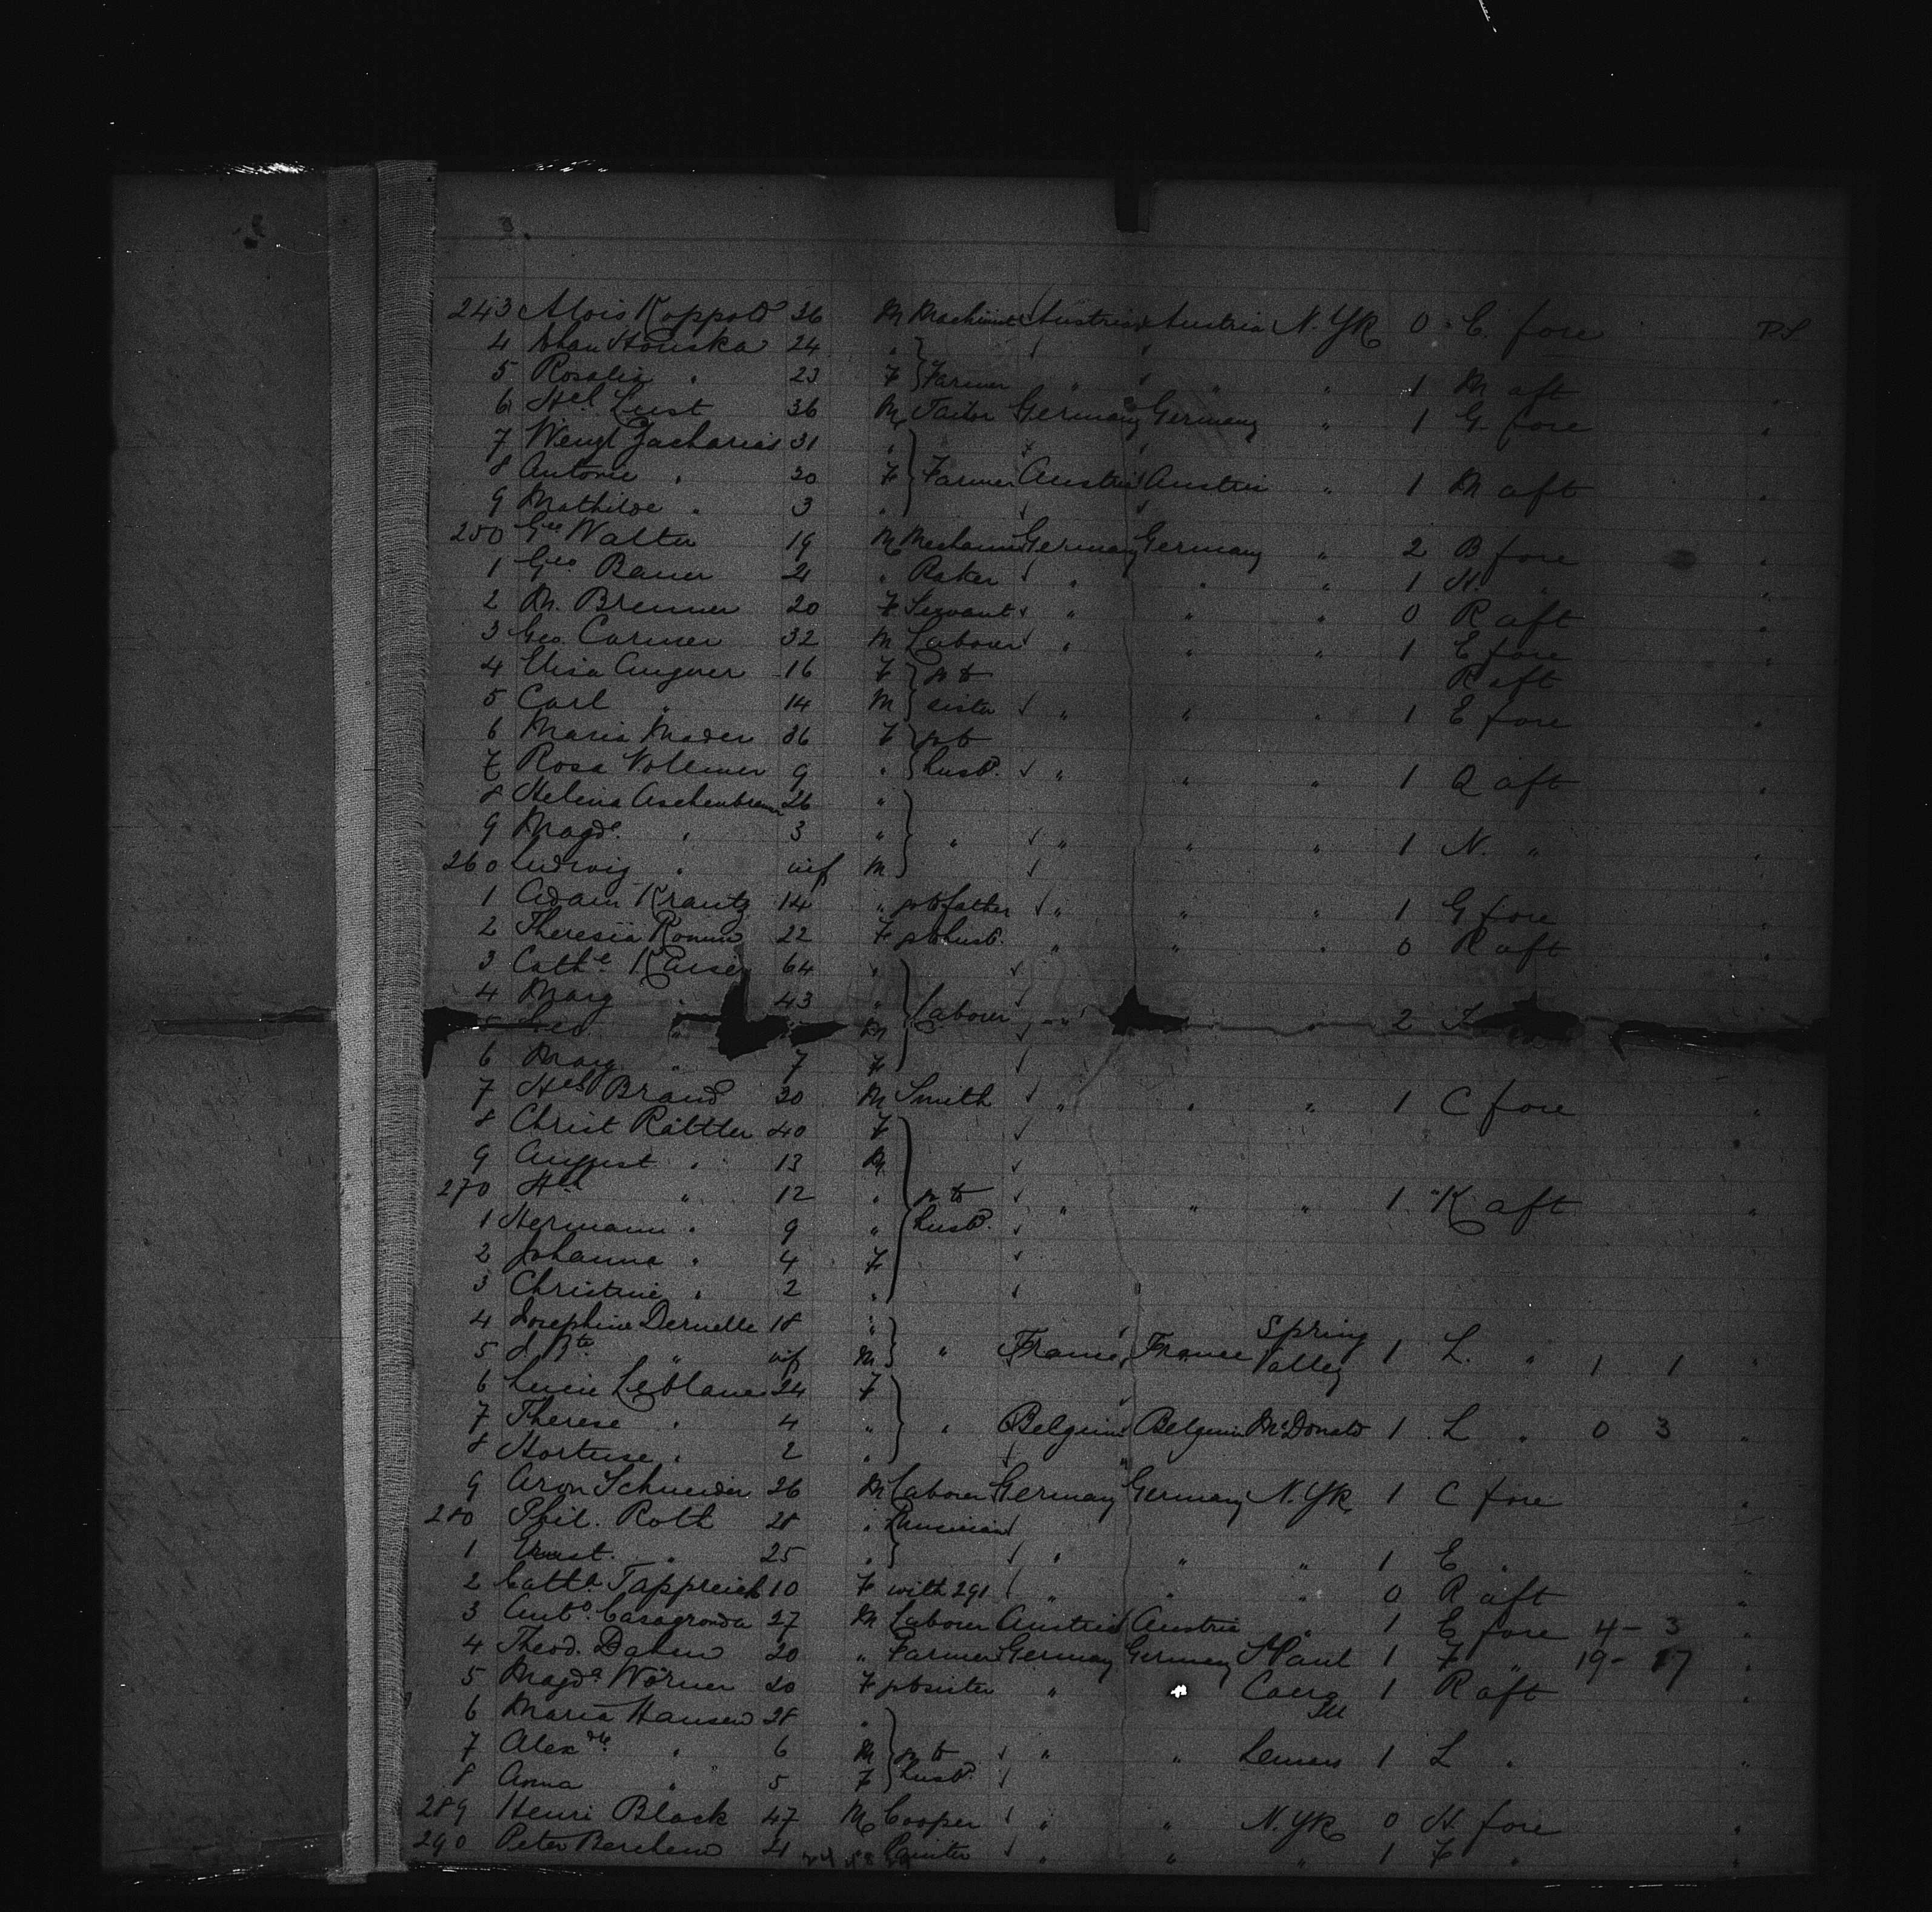 243 Alois Koppold 26 M Machinist Austria Austria N. Yk 0 C. fore P.S.
4 Johan Houska 24 "
5 Rosalia " 23 F Farmer " " " 1 M aft "
6 Hch Lust 36 M Tailor Germany Germany " 1 G fore "
7 Wenzl Zacharias 31 "
8 Antonie " 30 F Farmer Austria Austria " 1 M aft "
9 Mathilde " 3 "
250 Geo Walter 19 M Mechanic Germany Germany " 2 B fore "
1 Geo Bauer 21 " Baker " " " 1 H. " "
2 M. Brenner 20 F Servant " " " 0 R aft "
3 Geo. Cormer 32 M Labourer " " " 1 E fore "
4 Elisa Augner 16 F p to R aft
5 Carl " 14 M sister " " " 1 E fore "
6 Maria Mader 36 F p to
7 Rosa Vollmer 9 " husbd. " " " 1 Q aft "
8 Helena Aschenbrenner 26 "
9 Magde. " 3 " " " " " 1 N. " "
260 Ludwig " inf M
1 Adam Krantz 14 " pto father " " " 1 G fore "
2 Theresia 22 F pto husbd. " " " 0 R aft "
3 Cathe Kaiser 64 "
4 Marg " 43 " Labourer " " 2
5 Leo " M
6 Marg " 7 F
7 Hch Brand 30 M Smith " " " 1 C fore "
8 Christ Rättler 40 F
9 August " 13 M
270 Hch " 12 " p to " " " 1 K aft "
1 Hermann " 9 " husbd.
2 Johanna " 4 F
3 Christine " 2 "
4 Josephine Deruelle 18 " Spring
5 J. Bte " inf M " France France Valley 1 L. " 1 1 "
6 Lucie Leblanc 24 F
7 Therese " 4 " " Belgium Belgium McDonald 1 L " 0 3 "
8 Hortense " 2 "
9 Aron Schneider 26 M Labourer Germany Germany N. Yk 1 C fore "
280 Phil. Roth 28 " Musician
1 Ernst " 25 " " " " 1 E " "
2 Catha Tappreich 10 F with 291 " " " 0 R aft "
3 Anto. Casagranda 27 M Labourer Austria Austria " 1 E fore 4 - 3 "
4 Theod. Dahm 20 " Farmer Germany Germany St Paul 1 F " 19 - 17 "
5 Magda Wörner 20 F pto sister " 1 R aft "
6 Maria Hansen 28 " Ill
7 Alexdr " 6 M p to " " Lemars 1 L " "
8 Anna " 5 F husbd.
289 Henri Black 47 M Cooper " " N. Yk 0 H. fore "
290 Peter Berchem 21 " Painter " " " 1 F " "